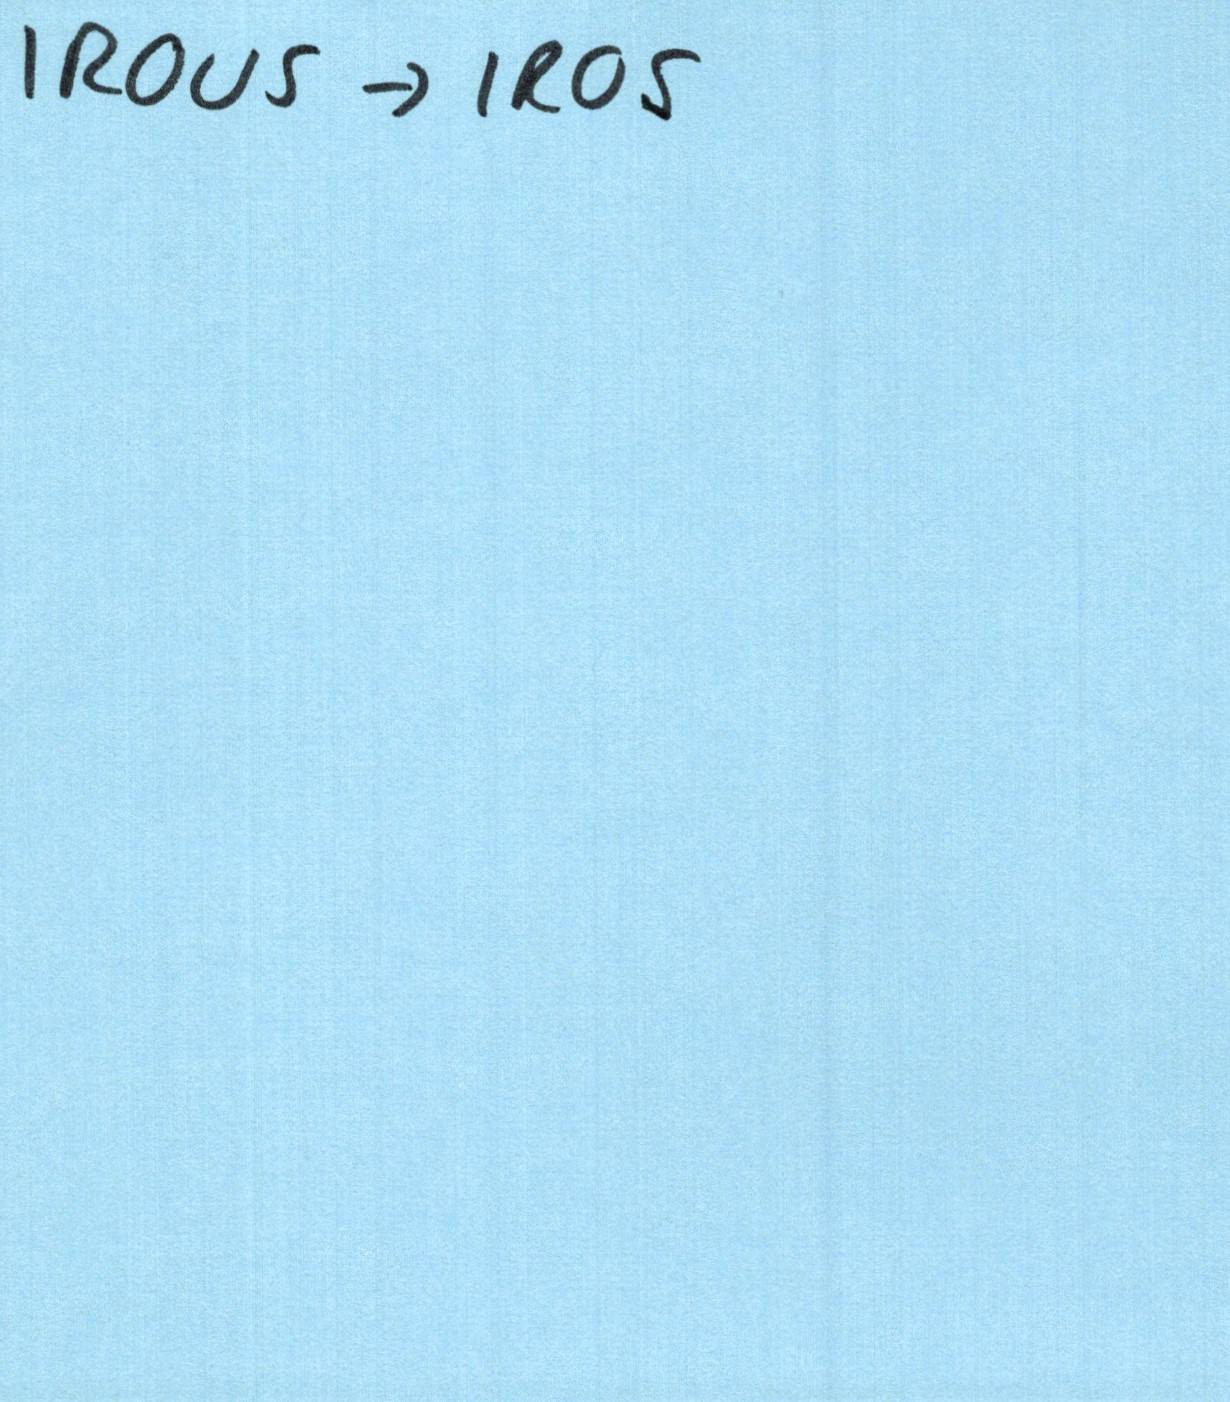 IROUS → IROS